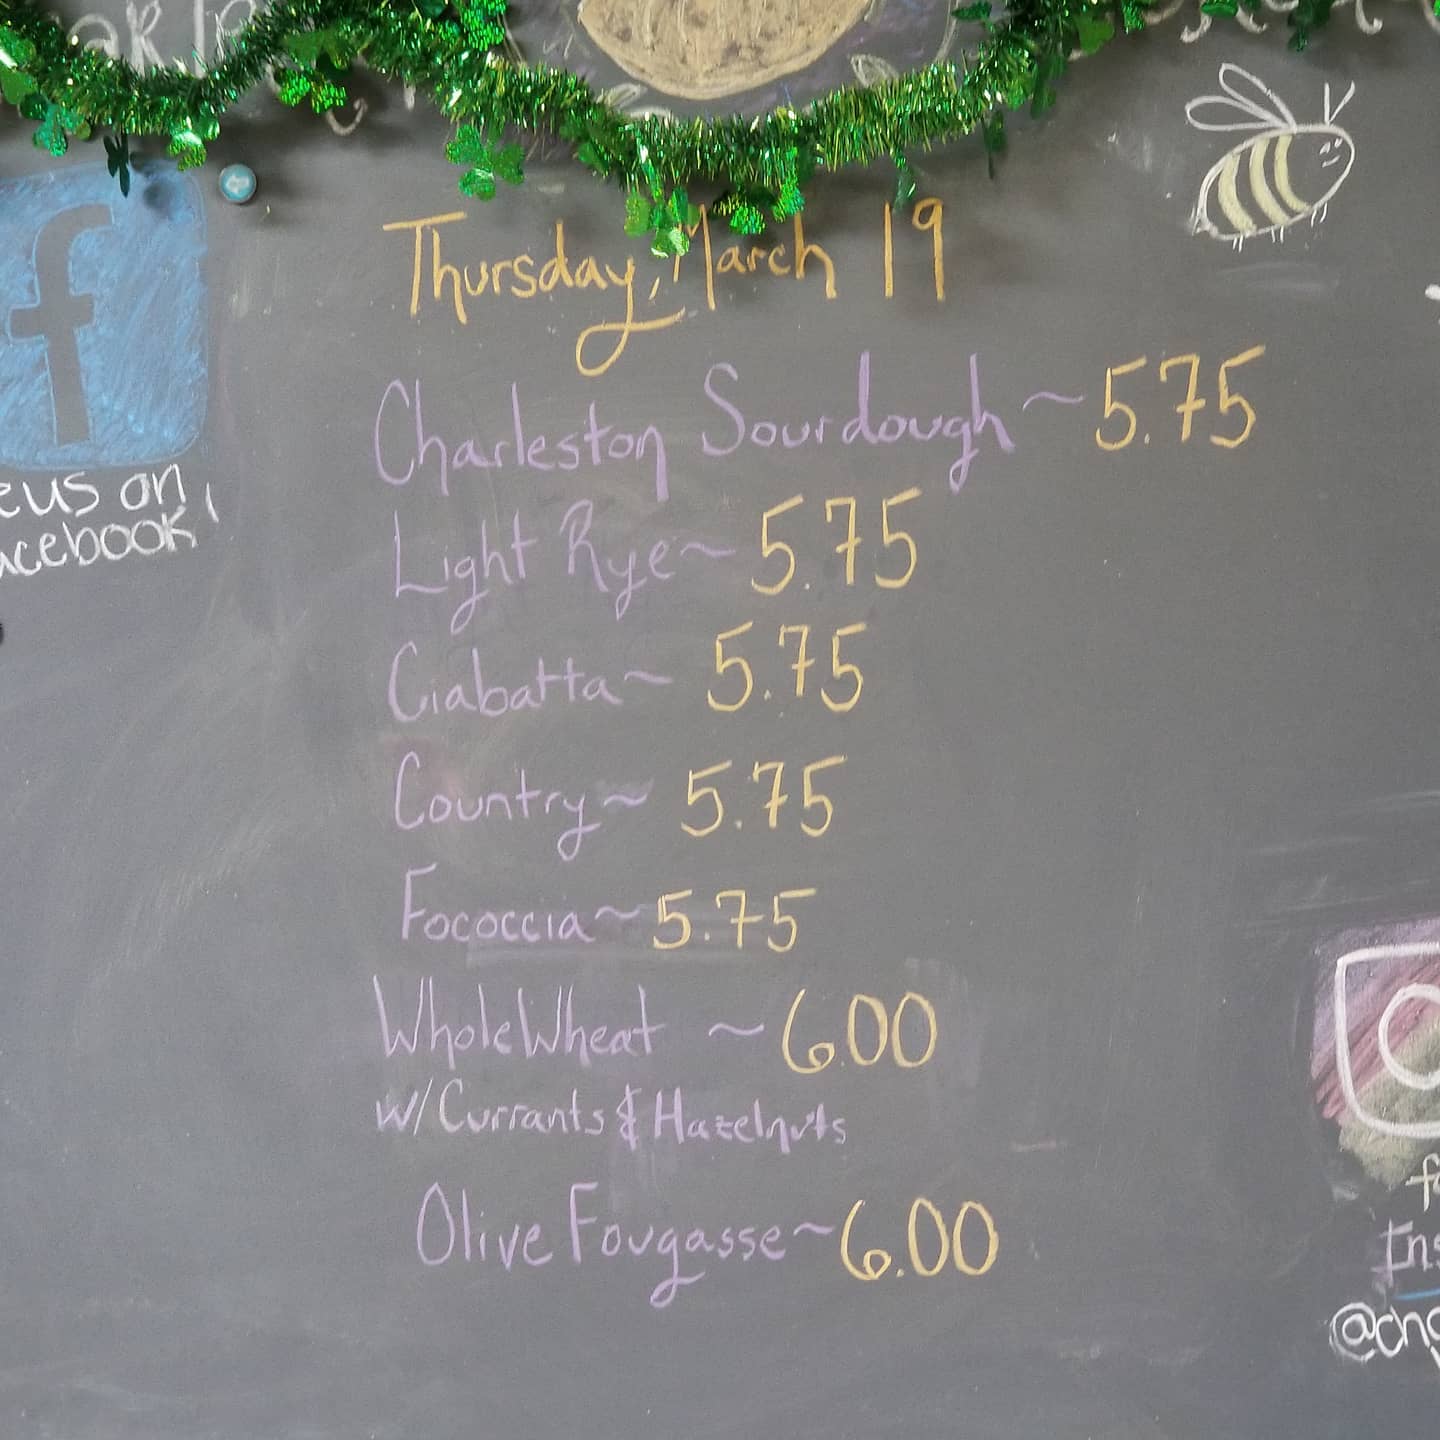 Thursday, March 19
Charleston Sourdough ~ 5.75
Light Rye ~ 5.75
Ciabatta ~ 5.75
Country ~ 5.75
Fococcia ~ 5.75
Whole Wheat ~ 6.00
w/ Currants & Hazelnuts
Olive Fougasse ~ 6.00
f
us on